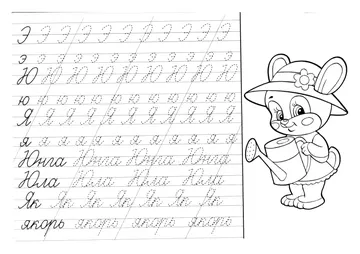 Э Э Э Э Э Э Э Э Э Э
э э э э э э э э э э
Ю Ю Ю Ю Ю Ю Ю Ю Ю
ю ю ю ю ю ю ю ю ю ю
Я Я Я Я Я Я Я Я Я Я
я я я я я я я я я я
Юнга Юнга Юнга Юнга
Юла Юла Юла Юла
Як Як Як Як Як Як Як
якорь якорь якорь якорь